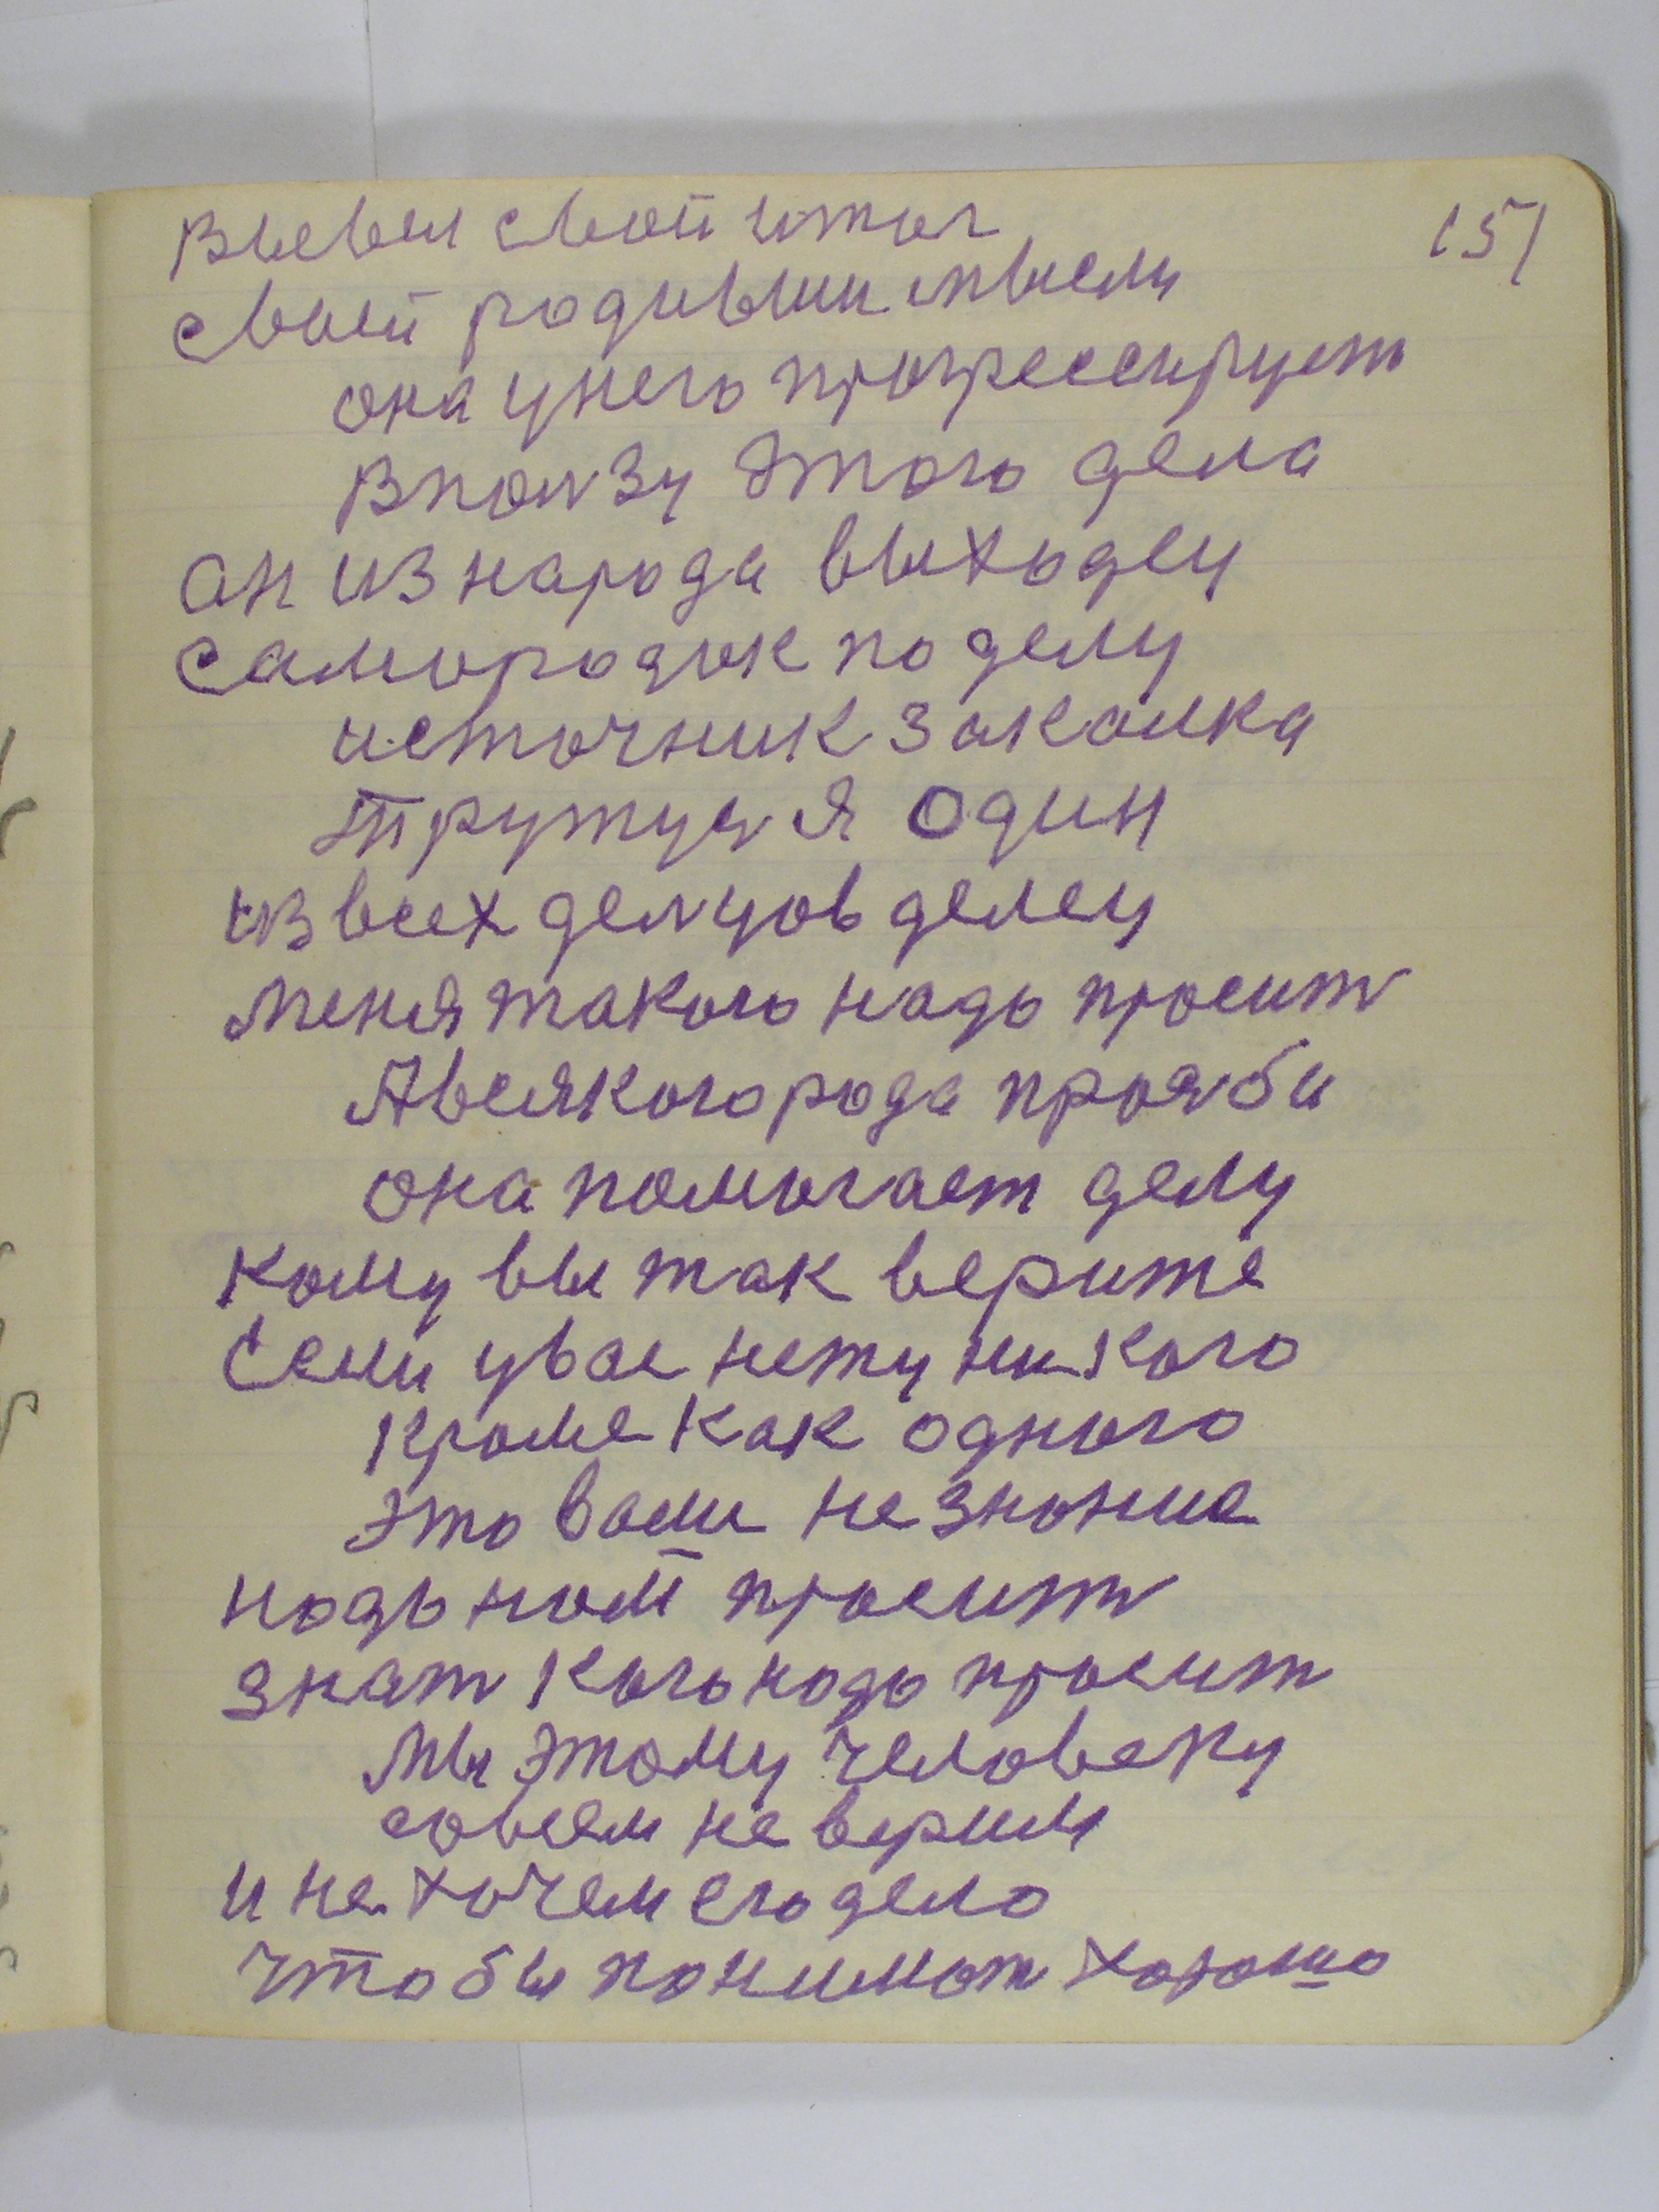 151
Вывел свой итог
своей родивши мысли
она унего прогрессирует
Вползу этого дела
он из народа выходец
самородок по делу
источник закалка
тружуся я один
из всех делцов делец
меня такого надо просит
Авсякого рода прозби
она помогает делу
кому вы так верите
Если увас нету никого
кроме как одного
это ваши незнание
надо нам просит
знат кого надо просит
мы этому человеку
совсем не верим
и не хочем его дело
чтобы понимат хорошо